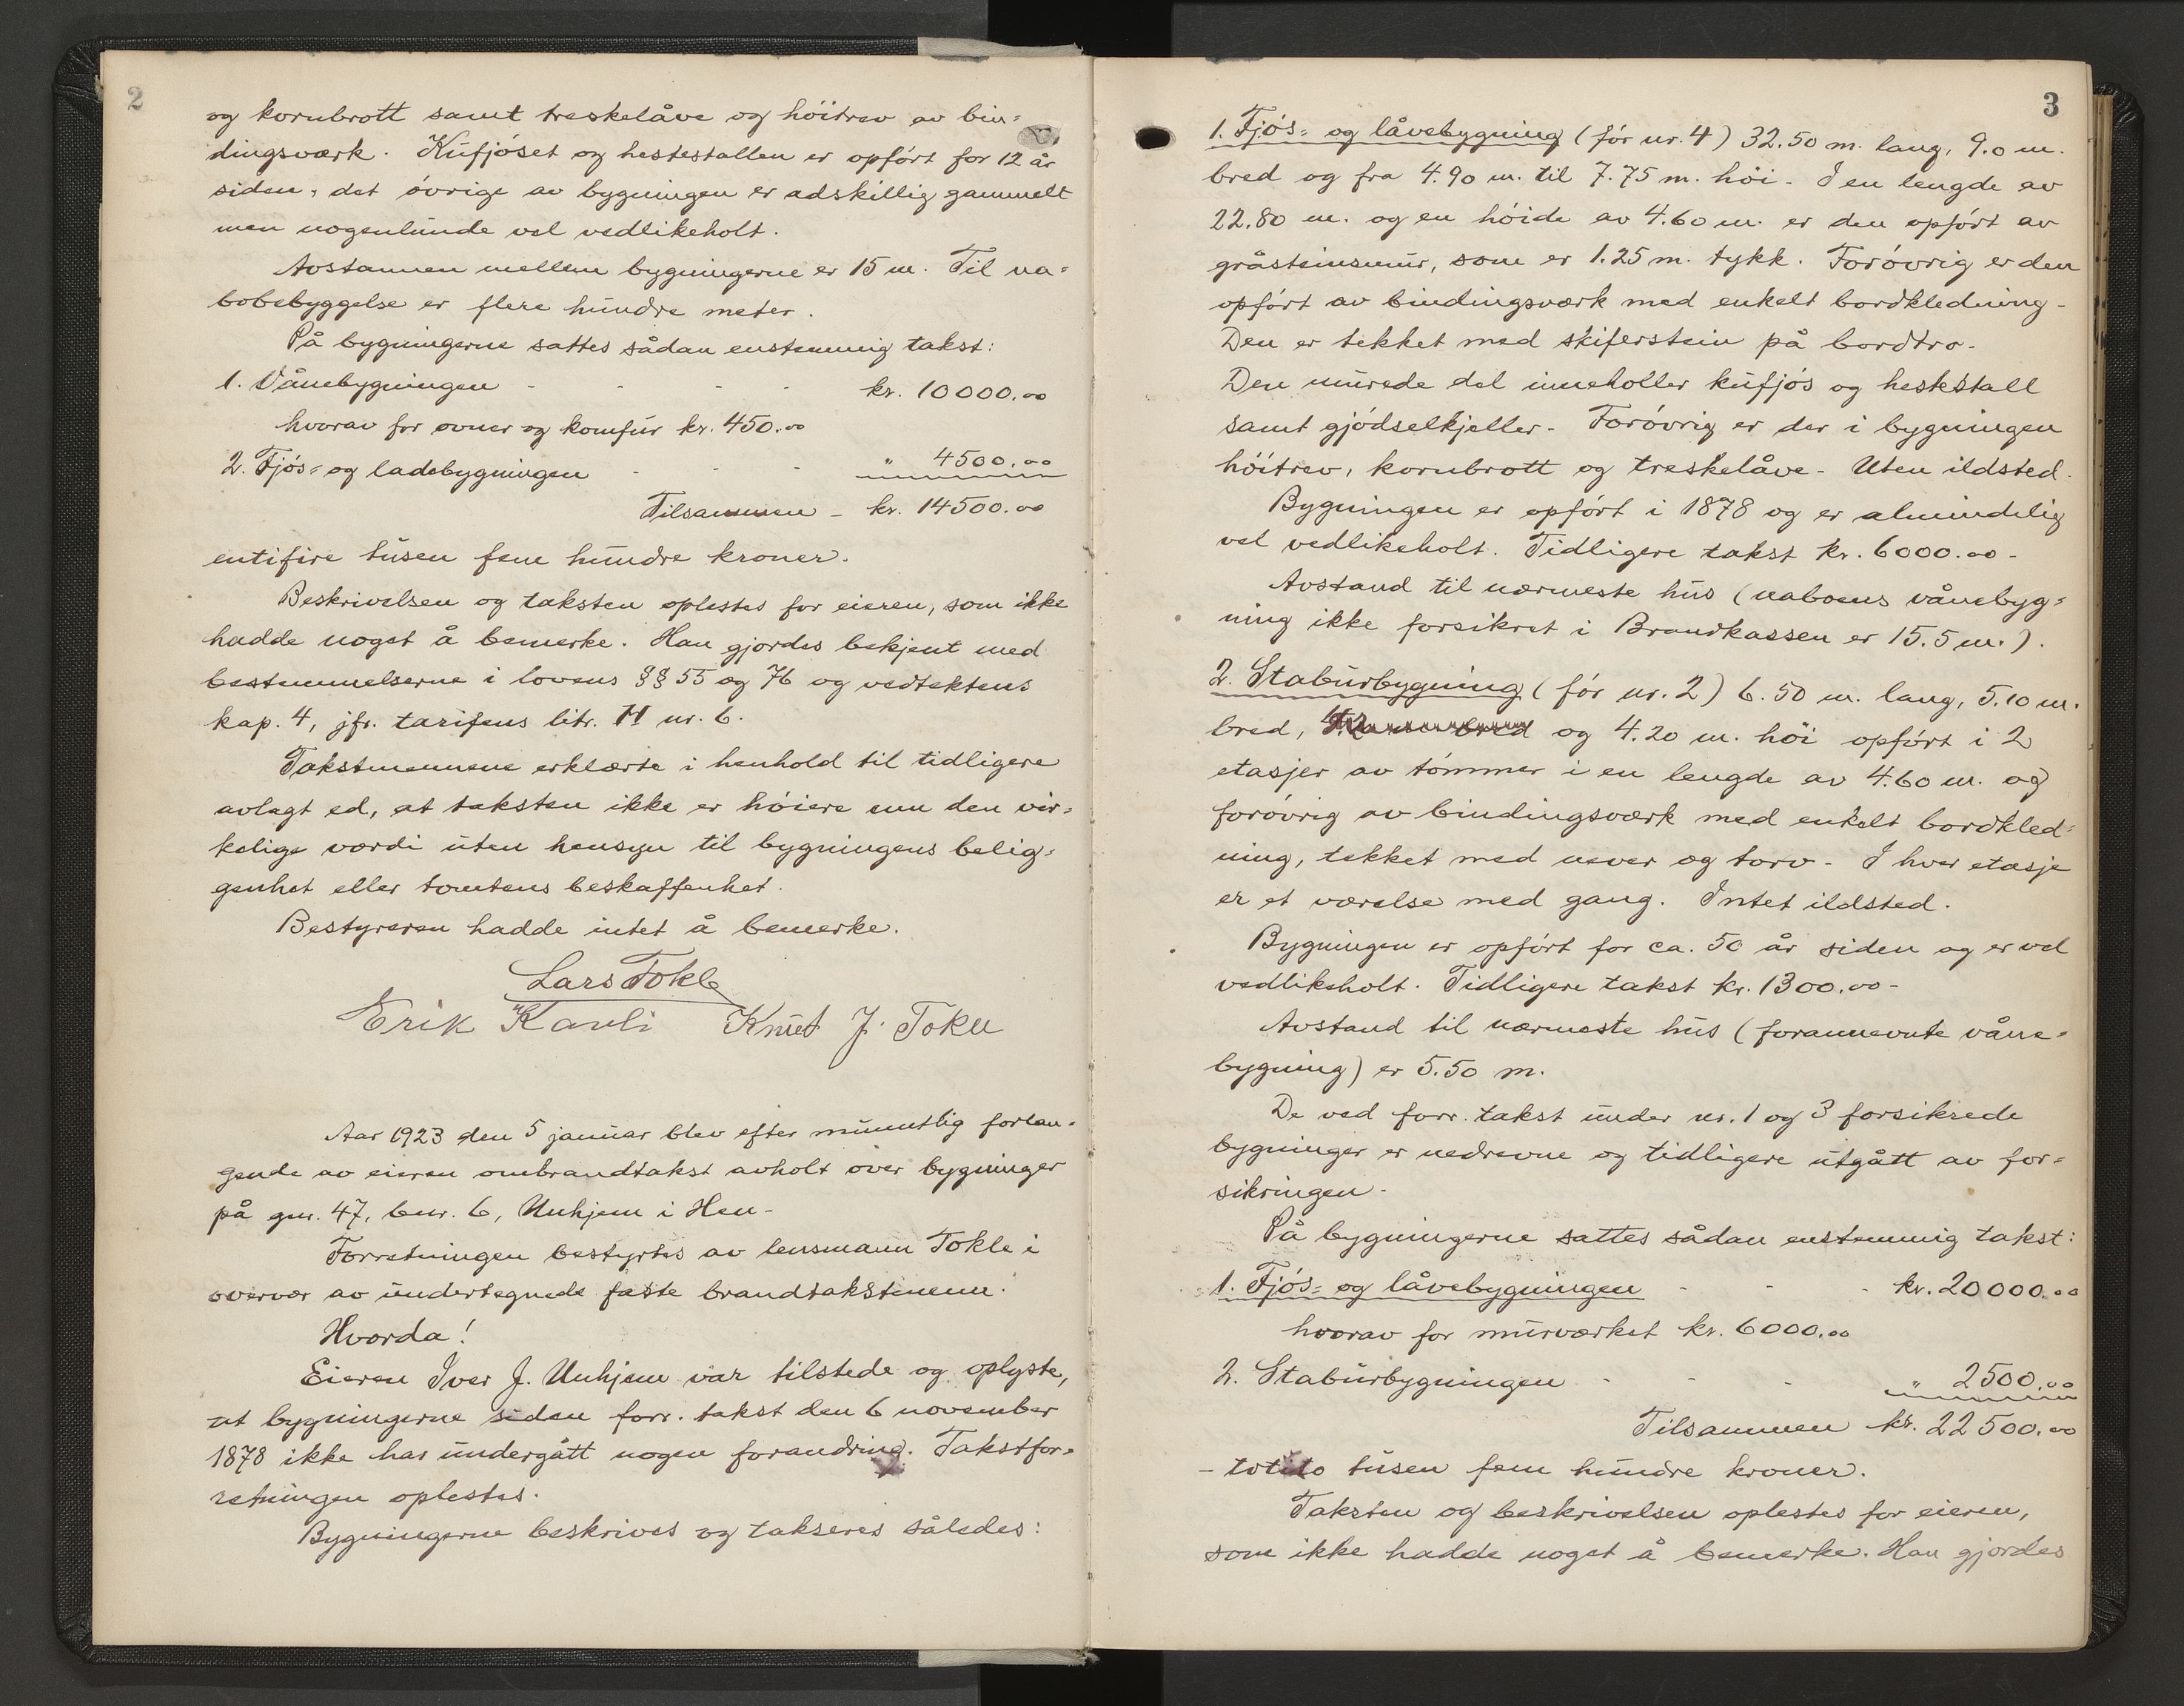 2
og kornbrott samt treskelåve og höitrev av bin=
dingsværk. Kufjöset og hestestallen er opfört for 12 år
siden, det övrige av bygningen er adskillig gammelt
men nogenlunde vel vedlikeholt.
Avstannen mellem bygningerne er 15 m. Til na=
bobebyggelse er flere hundre meter.
På bygningerne sattes sådan enstemmig takst:
1. Vånebygningen - - - - kr. 10000.00
hvorav for ovner og komfur kr. 450.00
2. Fjös= og ladebygningen - - - " 4500.00
Tilsammen - kr. 14500.00
entifire tusen fem hundre kroner.
Beskrivelsen og taksten oplestes for eieren, som ikke
hadde noget å bemerke. Han gjordes bekjent med
bestemmelserne i lovens §§ 55 og 76 og vedtektens
kap. 4, jfr. tarifens litr. H nr. 6.
Takstmennene erklærte i henhold til tidligere
avlagt ed, at taksten ikke er höiere enn den vir=
kelige værdi uten hensyn til bygningens belig=
genhet eller tomtens beskaffenhet.
Bestyreren hadde intet å bemerke.
Lars Tokle
Erik Kavli Knut J. Tokle
Aar 1923 den 5 januar blev efter munntlig forlan=
gende av eieren ombrandtakst avholt over bygninger
på gnr. 47, bnr. 6, Unhjem i Hen-
Forretningen bestyrtes av lensmann Tokle i
overvær av undertegnede faste brandtakstmenn.
Hvorda!
Eieren Iver J. Unhjem var tilstede og oplyste,
at bygningerne siden forr. takst den 6 november
1878 ikke har undergått nogen forandring. Takstfor=
retningen oplestes.
Bygningerne beskrives og takseres således:
3
1. Fjös= og låvebygning (för nr. 4) 32.50 m. lang, 9.0 m.
bred og fra 4.90 m. til 7.75 m. höi - I en lengde av
22.80 m. og en höide av 4.60 m. er den opfört av
gråsteinsmur, som er 1.25 m. tykk. Forövrig er den
opfört av bindingsværk med enkelt bordkledning -
Den er tekket med skiferstein på bordtro -
Den murede del inneholler kufjös og hestestall
samt gjödselkjeller - Forövrig er der i bygningen
höitrev, kornbrott og treskelåve - Uten ildsted.
Bygningen er opfört i 1878 og er almindelig
vel vedlikeholt. Tidligere takst kr. 6000.00 -
Avstand til nærmeste hus (naboens vånebyg=
ning ikke forsikret i Brandkassen er 15.5 m.).
2. Stabursbygning (för nr. 2) 6.50 m. lang, 5.10 m.
bred, og 4.20 m. höi opfört i 2
etasjer av tömmer i en lengde av 4.60 m. og
forövrig av bindingsværk med enkelt bordkled=
ning, tekket med never og torv - I hver etasje
er et værelse med gang. Intet ildsted.
Bygningen er opfört for ca. 50 år siden og er vel
vedlikeholt. Tidligere takst kr. 1300.00 -
Avstand til nærmeste hus (forannevnte våne=
bygning) er 5.50 m.
De ved forr. takst under nr. 1 og 3 forsikrede
bygninger er nedrevne og tidligere utgått av for=
sikringen -
På bygningerne sattes sådan enstemmig takst:
1. Fjös= og låvebygningen - - - kr. 20000.00
hvorav for murværket kr. 6000.00
2. Stabursbygningen - - - " 2500.00
Tilsammen kr. 22500.00
- totito tusen fem hundre kroner.
Taksten og beskrivelsen oplestes for eieren,
som ikke hadde noget å bemerke. Han gjordes